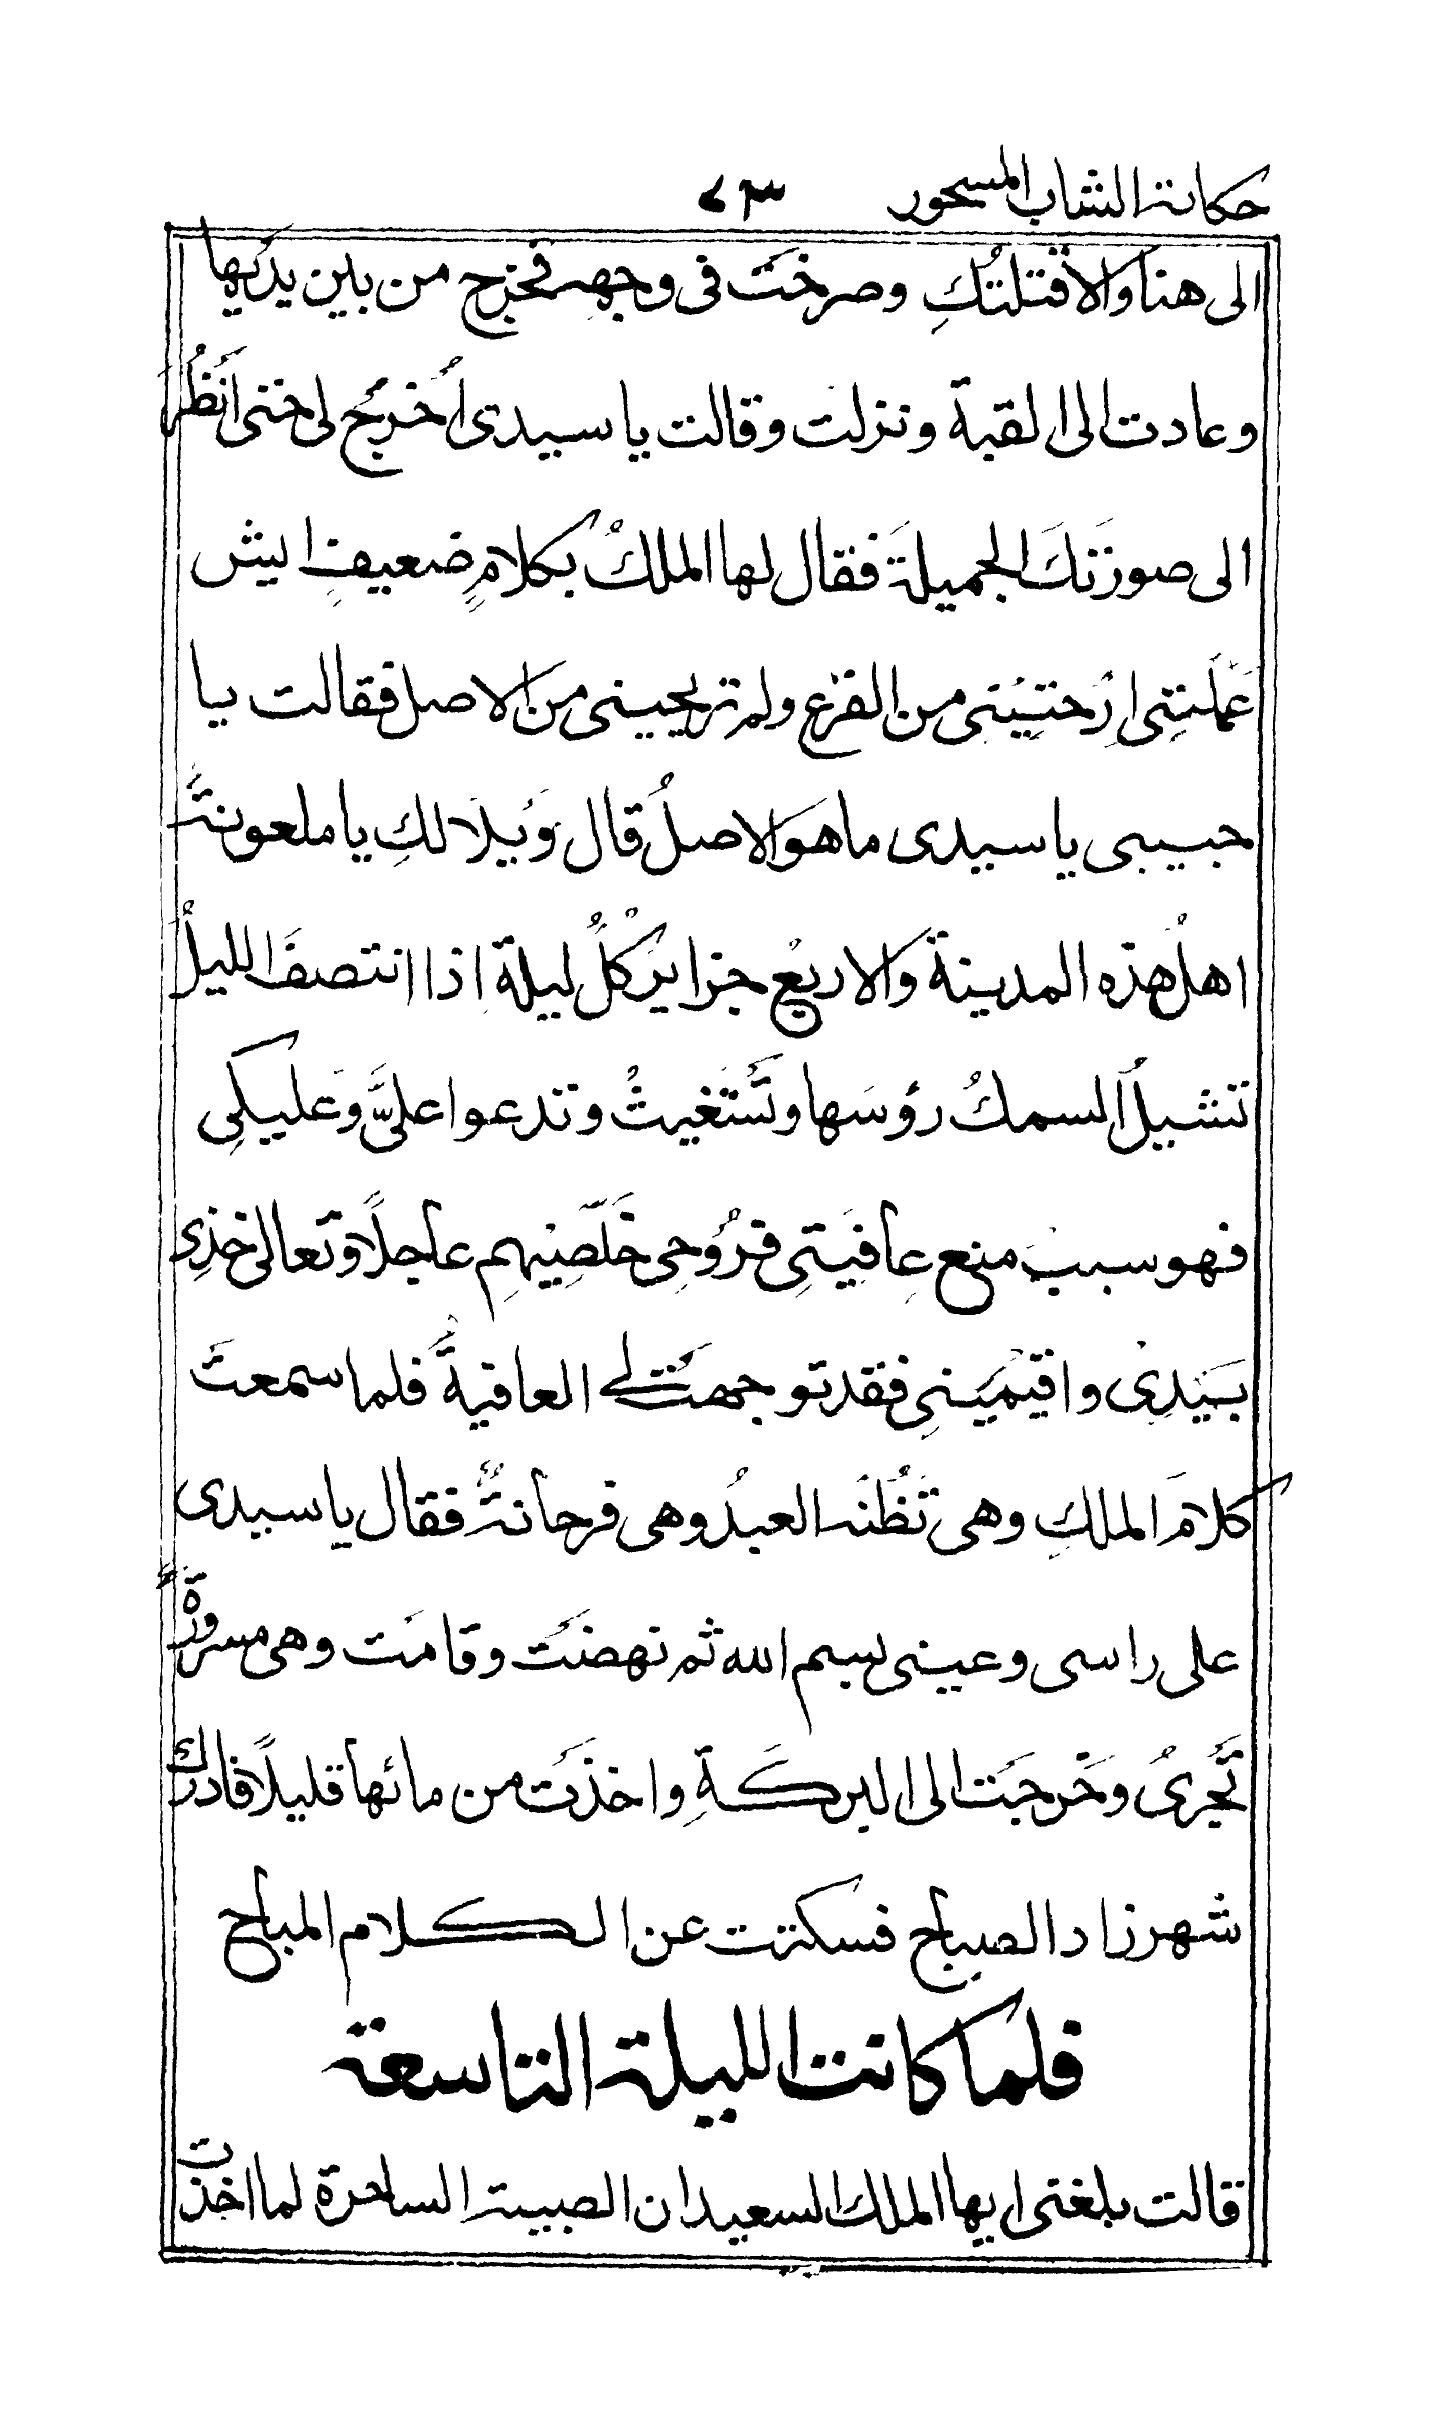 حكاية الشاب المسحور ٦٣
الى هنا والا قتلتُكِ وصرختَ فى وجهه فخرج من بين يديها
وعادت الى القبة ونزلت وقالت يا سيدى اُخرُج لى حتى اَنظُر
الى صورتكَ الجميلةَ فقال لها الملكُ بكلامٍ ضعيفٍ ايش
عَمْلتِنِى ارحتِيْنِى من الفرع ولم تريحينى من الاصل فقالت يا
حبيبى يا سيدى ما هوَ الاصلُ قال وَيْلا لكِ يا ملعونةً
اهلُ هذه المدينة والاربعْ جزايرْ كلُ ليلة اِذا انتصفَ الليلُ
تنشيلُ السمكُ رؤسَها وتَستغيثُ وتدعوا علىَّ وعَليكِى
فهو سببْ منع عِافيَتِى فرُوْحِى خَلّصِيْهِم عاجلاً وتَعالى خذِى
بيَدِىْ واقيمْينِى فقد توجهتْ لى العافيةُ فلما سمعتَ
كلامَ الملكِ وهى تَظُنَه العبدُ وهى فرحانةٌ فقال يا سيدى
على راسى وعينى بسم الله ثم نهضَت وقامَت وهى مسرورةً
تَجرىُ وخَرجَت الى البركَةِ واخذَت من مائها قليلاً فادرك
شهرزاد الصباح فسكتت عن الكلام المباح
فلما كانت الليلة التاسعة
قالت بلغنى ايها الملك السعيد ان الصبية الساحرة لما اخذت